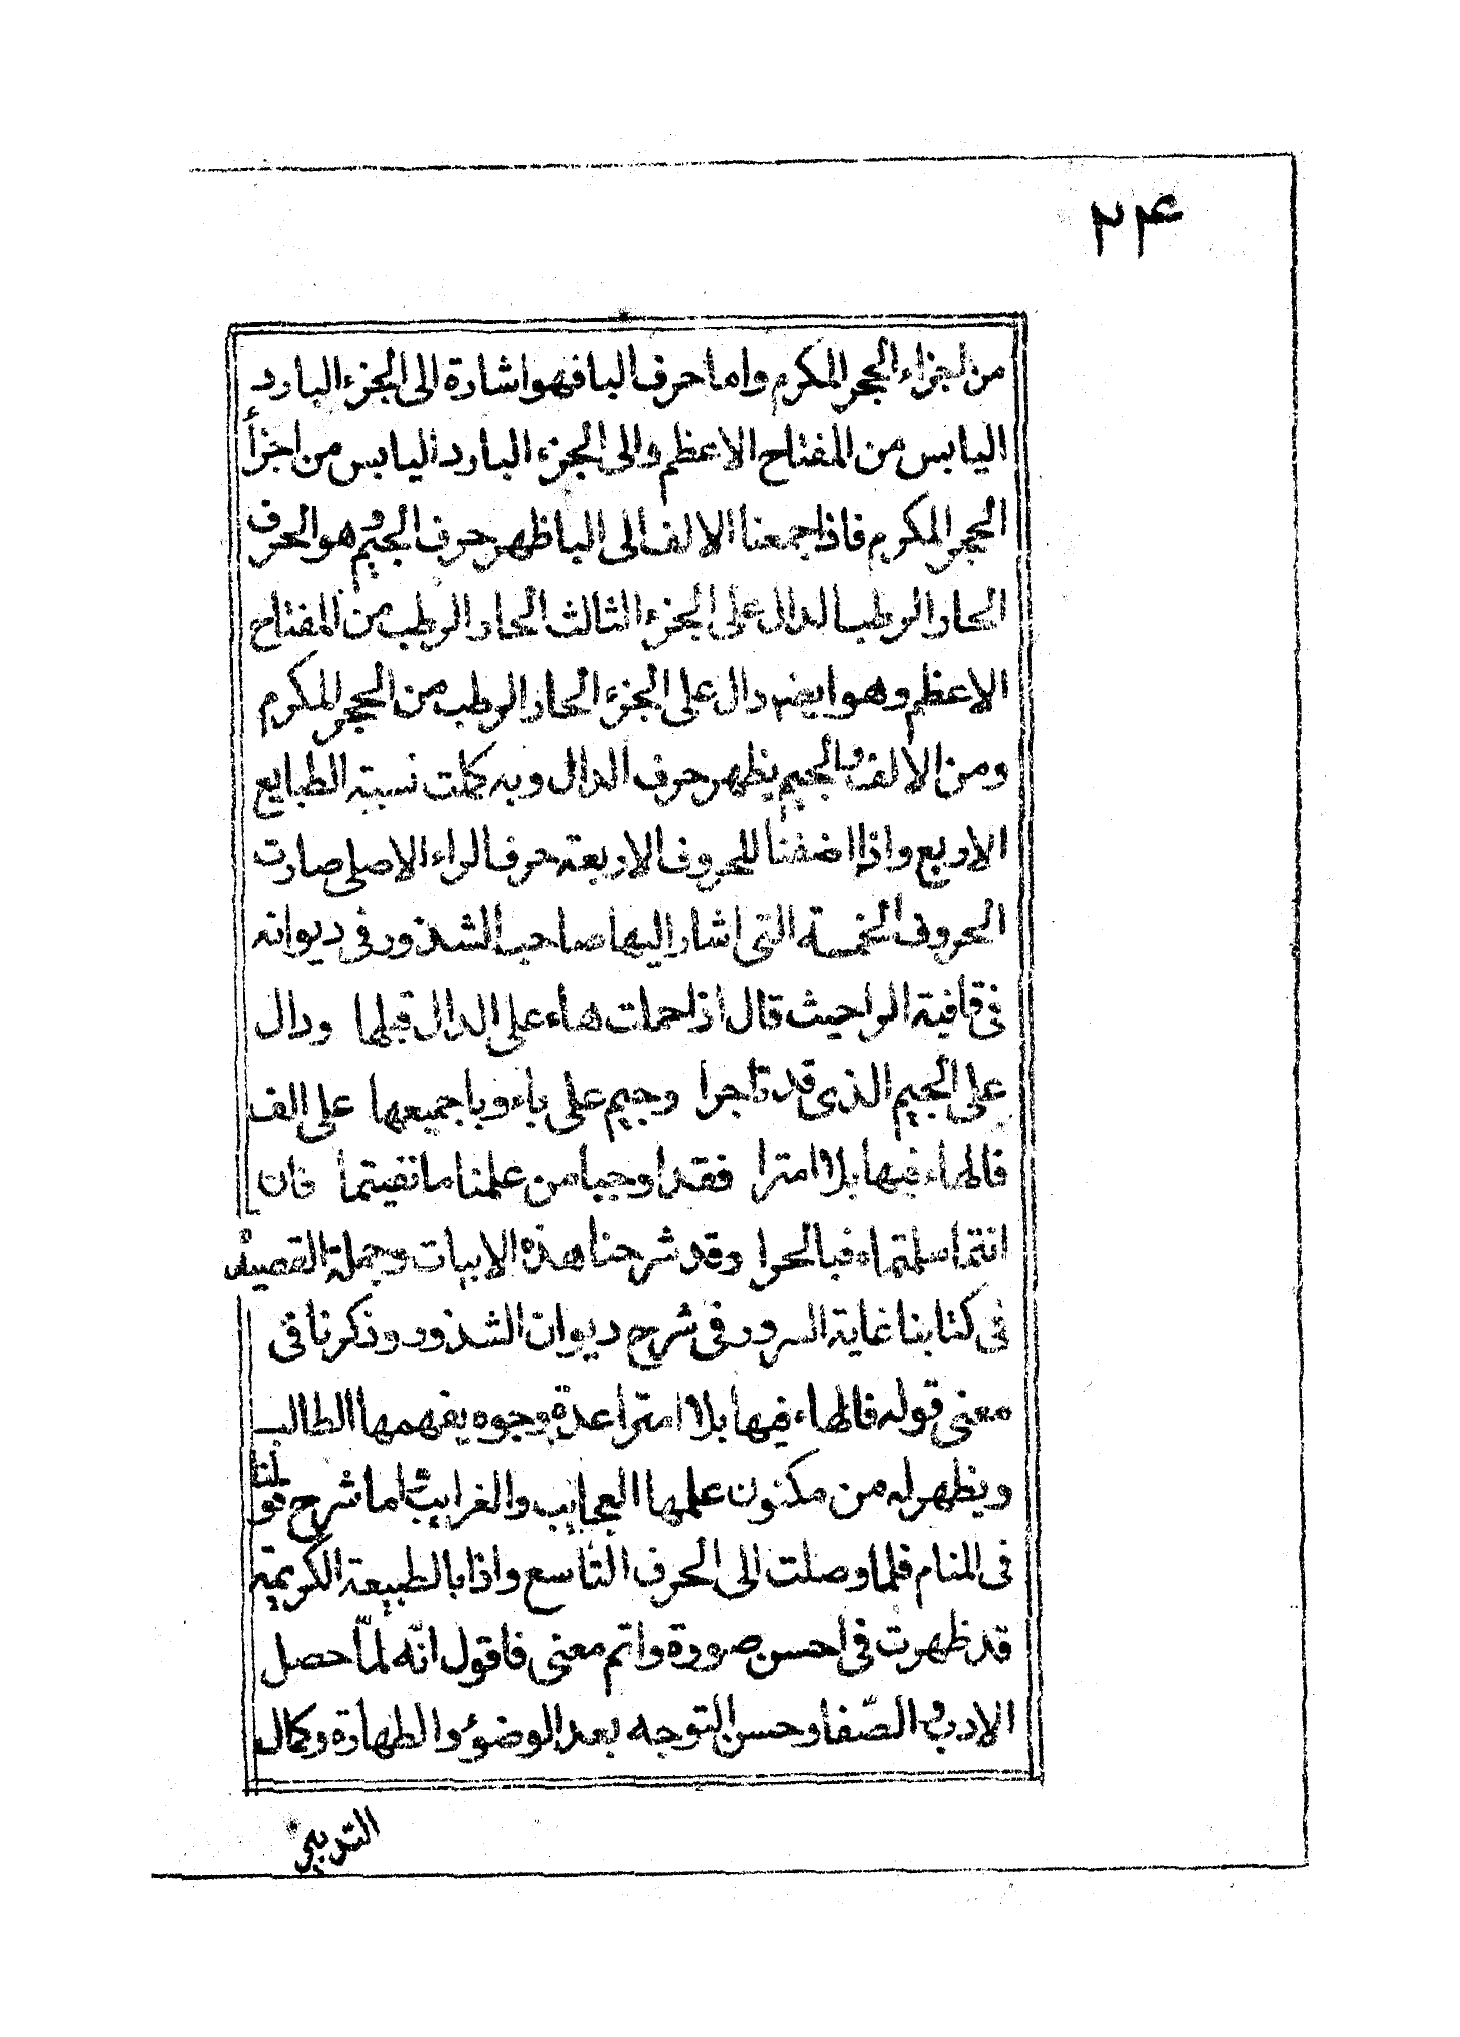 ۲۴
من اجزاء الحجر المكرم واما حرف البا فهو اشارة الى الجزء البارد
اليابس من المفتاح الاعظم والى الجزء البارد اليابس من اجزأ
الحجر المكرم فاذا جمعنا الالف الى البا ظهر حرف الجيم وهو الحرف
الحار الرطب الدال على الجزء الثالث الحار الرطب من المفتاح
الاعظم وهو ايضه دال على الجزء الحار الرطب من الحجر المكرم
ومن الالف والجيم يظهر حرف الدال وبه كملت نسبة الطبايع
الاربع واذا اضفنا للحروف الاربعة حرف الراء الاصلى صارت
الحروف الخمسة التى اشار اليها صاحب الشذور فى ديوانه
فى قافية الرا حيث قال اذا حملت هاء على الدال قبلها ودال
على الجيم الذى قد تاجرا وجيم على باء وبا جميعها على الف
فالهاء فيها بلا امترا فقد اوجبا من علمنا ما نفيتما فان
انتما سلمتماه فبالحرا وقد شرحنا هذه الابيات وجملة القصيدة
فى كتابنا غاية السرور فى شرح ديوان الشذور وذكرنا فى
معنى قوله فالهاء فيها بلا امترا عدة وجوه يفهمها الطالب
ويظهر له من مكنون علمها العجايب والغرايب اما شرح قولنا
فى المنام فلما وصلت الى الحرف التاسع واذا بالطبيعة الكريمة
قد ظهرت فى احسن صورة واتم معنى فاقول انّه لمّا حصل
الادب والصّفا وحسن التوجه بعد الوضؤ والطهارة وكمال